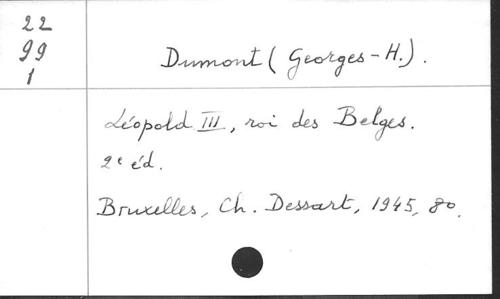 22
99
1
Dumont (Georges-H.).
Léopold III, roi des Belges.
2e éd.
Bruxelles, Ch. Dessart, 1945, 8o.